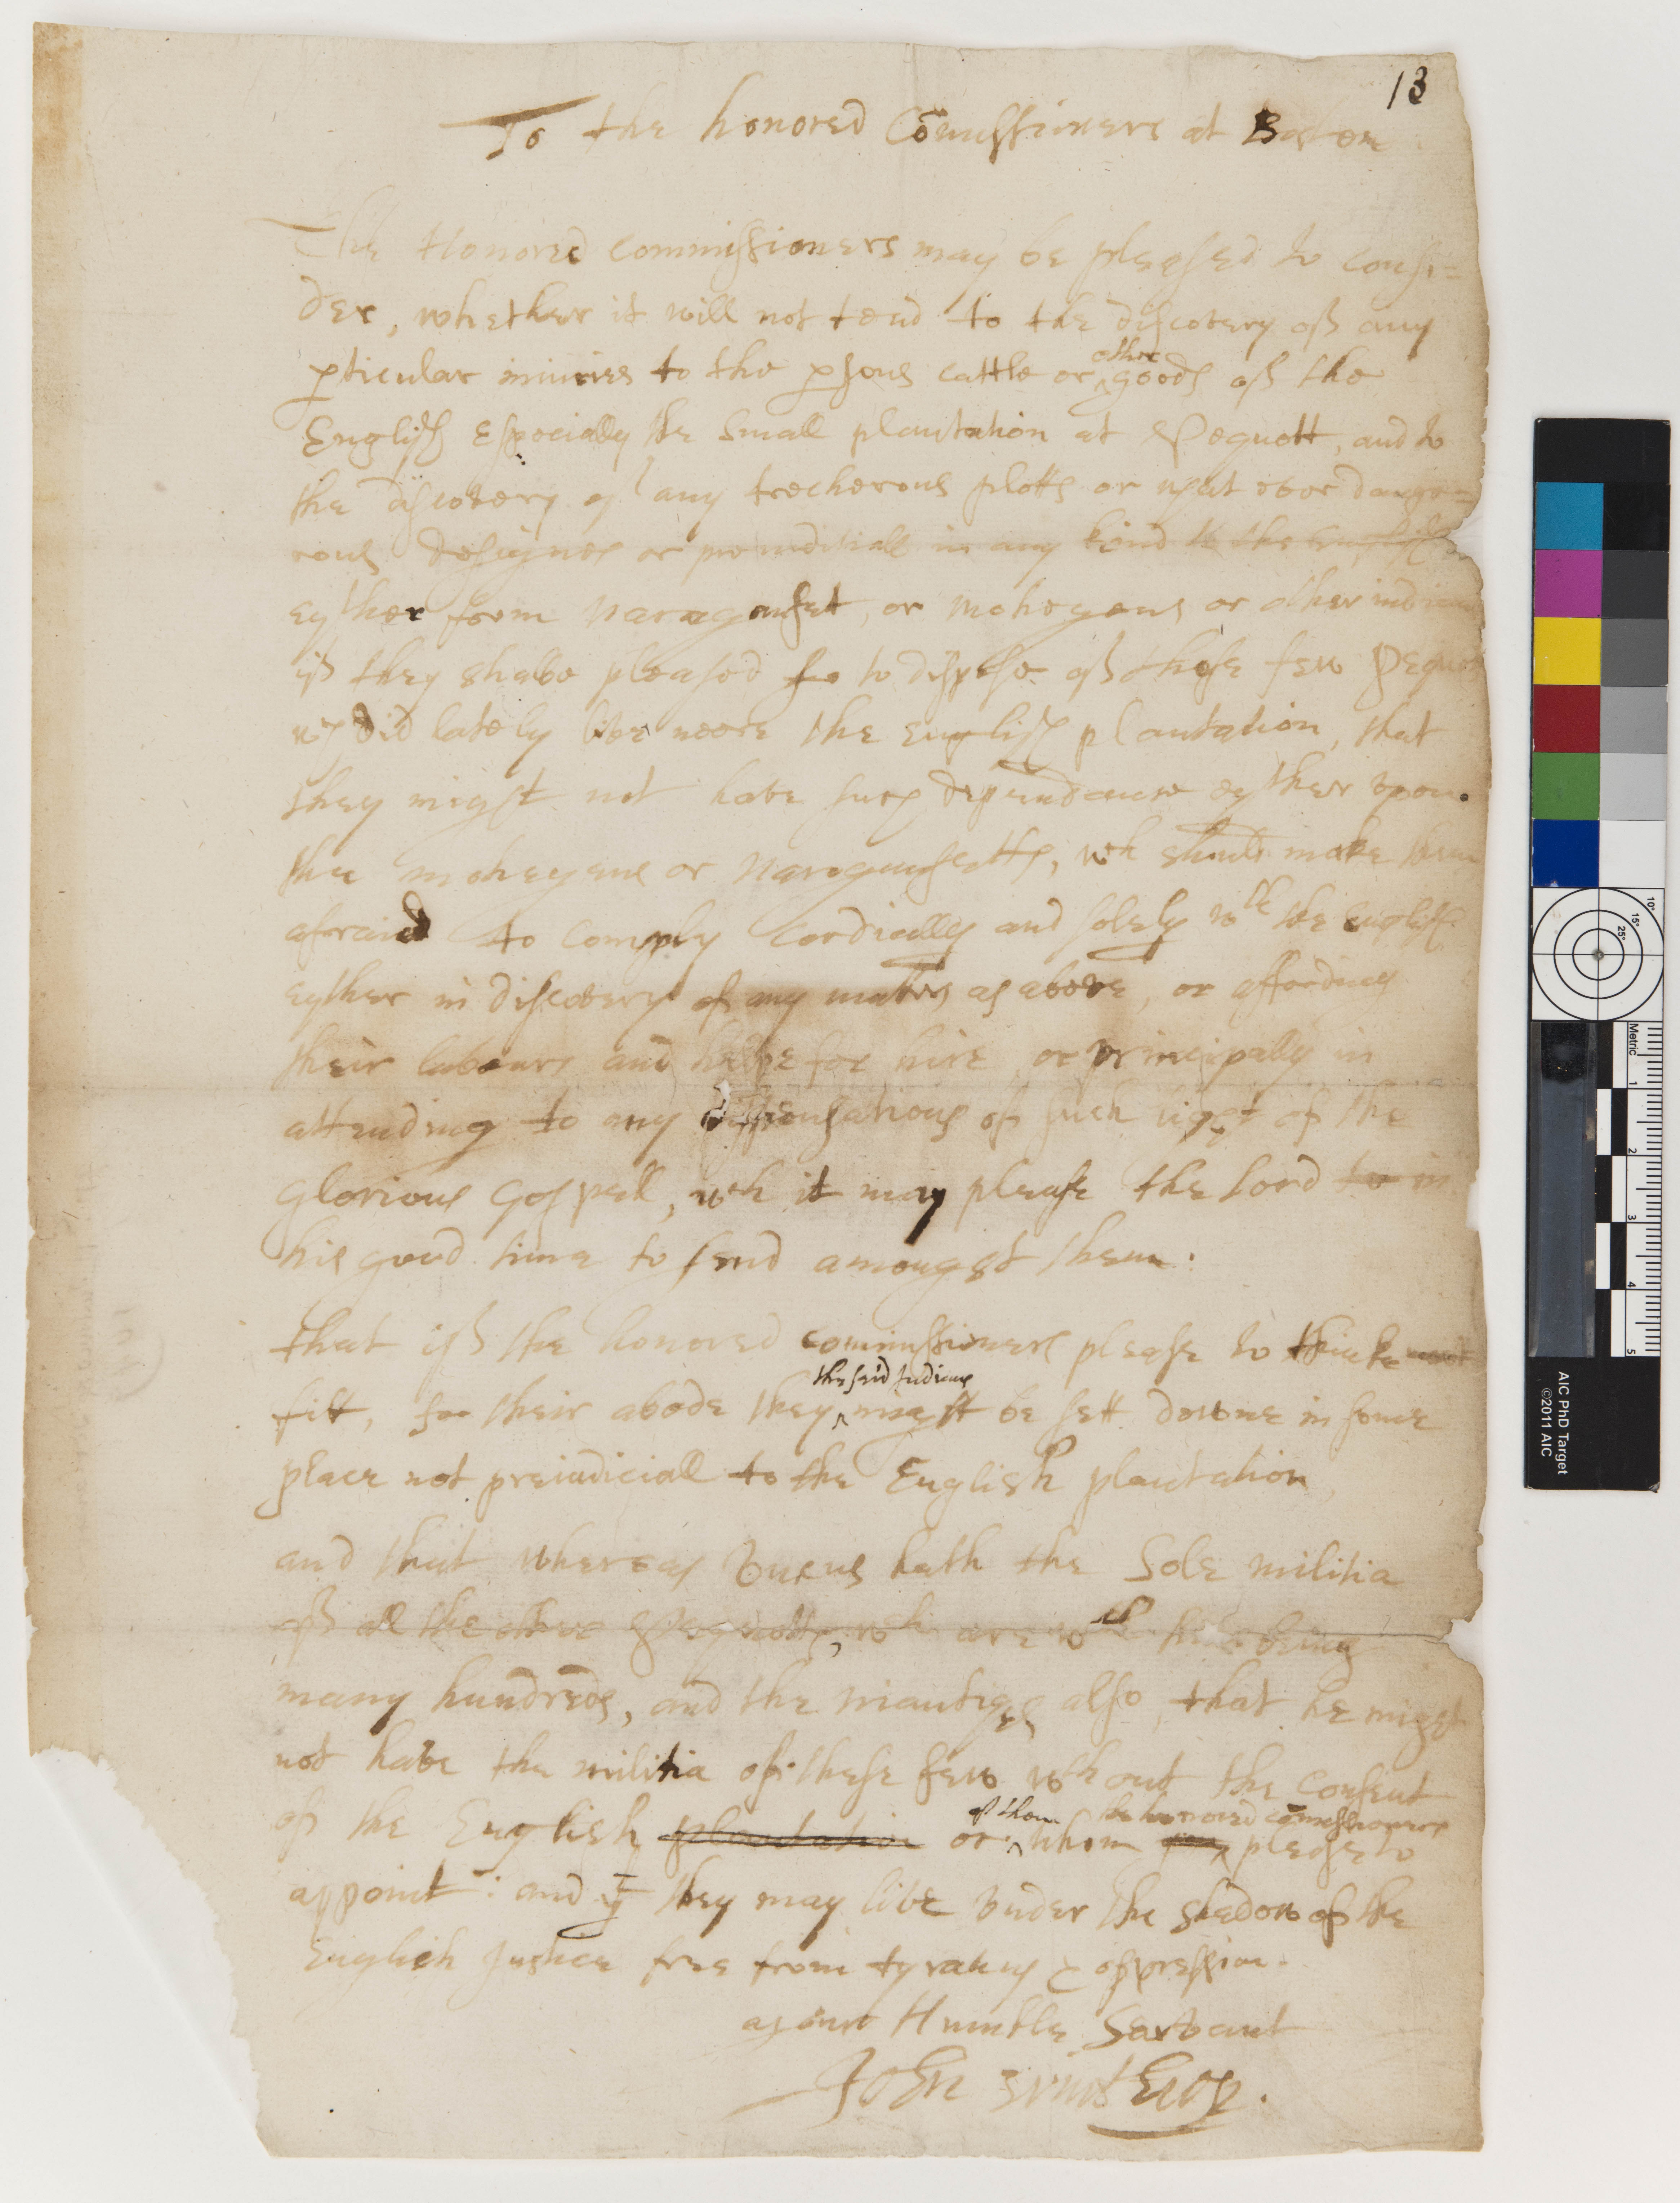 13
To the honored Comissioners at Boston
The Honored commissioners may be pleased to consi=
der, whether it will not tend to the discovery of any
pticular iniuries to the psons cattle or ^other goods of the
English Especially the small plantation at Pequott, and to
the discovery of any trecherous plotts or what ever dange=
rous designes or preiudiciall in any kind to the English
eyther from Naragonset, or mohegens or other indians
if they shalbe pleased so to dispose of those few Pequots
wch did lately live neere the English plantation, that
they might not have such dependance eyther upon
the mohegens or Naragansetts, wch should make them
afraid to comply cordially and solely wth the English
eyther in discovery of any matters as above, or affording
their labours and helpe for hire or principally in
attending to any dispensations of such light of the
glorious Gospell, wch it may please the Lord to in
his good time to send amongst them.
that if the honored comissioners please to thinke
fitt, for their abode they ^the said Indians might be sett downe in some
place not preiudiciall to the English plantation,
and that whereas Uncus hath the sole militia
of all the other Pequotts, wch are wth him being
many hundreds, and the niantiges also, that he might
not have the militia of these few wthout the consent
of the English plantation or ^of them whom ^the honored comissioners please to
appoint: and yt they may live under the shadow of the
English Justice free from tyrany & oppression.
your Humble Servant
John Winthrop.
AIC PhD Target
©2011 AIC
Metric
1
2
3
4
5
10°
15°
25°